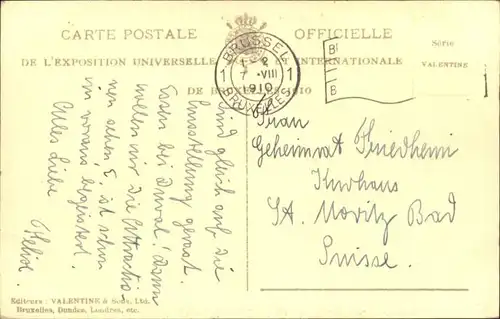 CARTE POSTALE OFFICIELLE
DE L'EXPOSITION UNIVERSELLE ET INTERNATIONALE
DE BRUXELLES 1910
Série
VALENTINE
BRUSSEL
1 1
7 -VIII
1910
BRUXELLES
B
B
Sind gleich auf die
Ausstellung gerast.
Essen bei Duval! Dann
wollen wir die Attractio-
nen sehen! E. ist schon
im voraus begeistert.
Alles Liebe
Frau
Geheimrat Friedheim
Kurhaus
St. Moritz Bad
Suisse.
Editeurs: VALENTINE & Sons, Ltd.
Bruxelles, Dundee, Londres, etc.